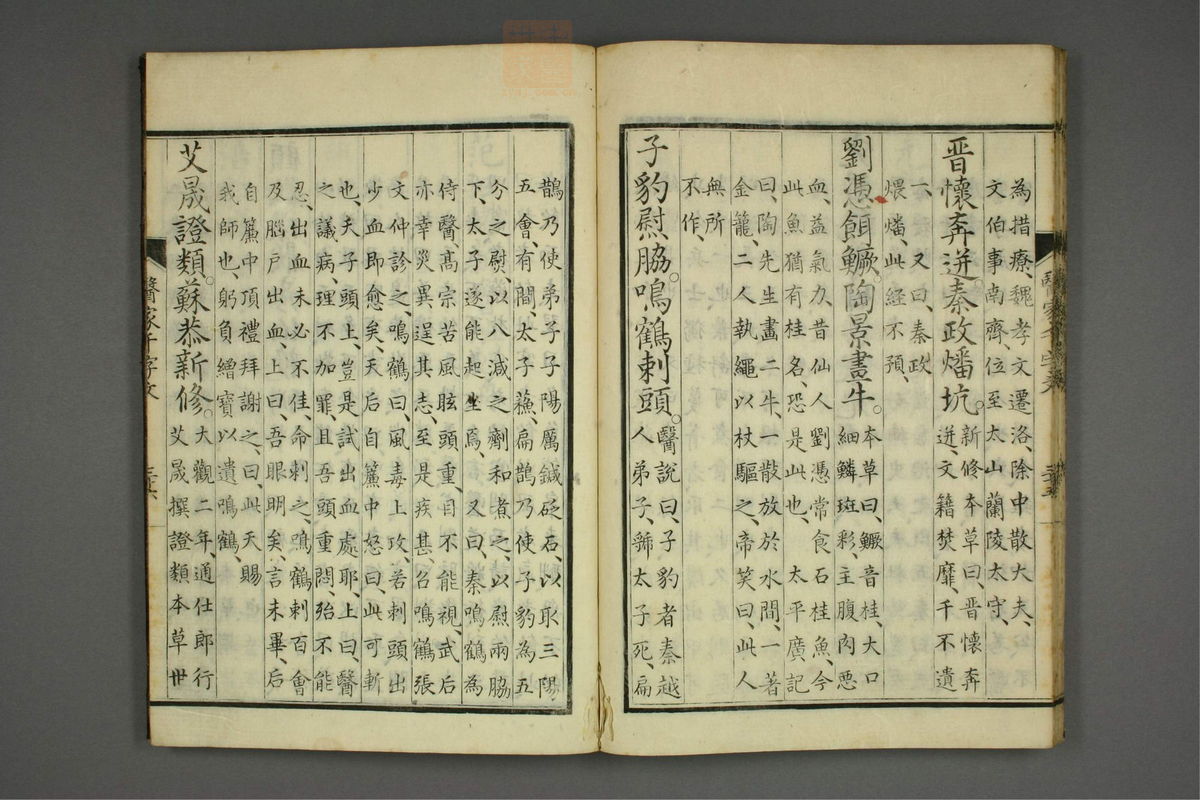 為措療、魏孝文遷洛、除中散大夫、
文伯事南齊、位至太山蘭陵太守、
晋懷奔迸。秦政燔坑。
新修本草曰、晋懷奔
迸、文籍焚靡、千不遺
一、又曰、秦政
煨燔、此経不預、
劉憑餌鱖。陶景畫牛。
本草曰、鱖音桂、大口
細鱗斑彩、主腹内悪
血、益氣力、昔仙人劉憑常食石桂魚、今
此魚猶有桂名、恐是此也、 太平廣記
曰、陶先生畫二牛、一散放於水間、一著
金籠、二人執繩以杖驅之、帝笑曰、此人
無所
不作、
子豹慰脇。鳴鶴刺頭。
醫說曰、子豹者秦越
人弟子、虢太子死、扁
鵲乃使弟子子陽厲鍼砭石、以取三陽
五會、有間、太子蘇、扁鵲乃使子豹為五
分之慰、以八減之劑和煮之、以慰兩脇
下、太子遂能起坐焉、 又曰、秦鳴鶴為
侍醫、髙宗苦風眩頭重、目不能視、武后
亦幸災異逞其志、至是疾甚召鳴鶴張
文仲診之、鳴鶴曰風毒上攻、若刺頭出
少血即愈矣、天后自簾中怒曰、此可斬
也、天子頭上、豈是試出血處耶、上曰、醫
之議病、理不加罪、且吾頭重悶、殆不能
忍、出血未必不佳、命刺之、鳴鶴刺百會
及腦戶出血、上曰吾眼明矣、言未畢、后
自簾中頂禮拜謝之、曰、此天賜
我師也、躬負繒寶以遺鳴鶴、
艾晟證類。蘇恭新修。
大觀二年、通仕郎行
艾晟撰證類本草世
醫家千字文 三十六